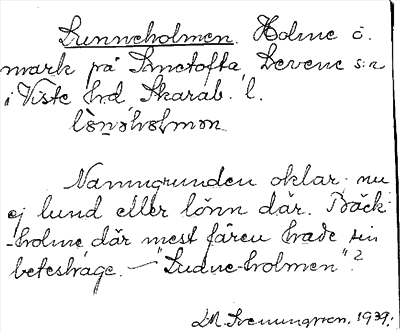 Lunneholmen. Holme å
mark på Smetofta, Levene s:n
i Viste hd, Skarab. l.
lònəhòlmən
Namngrunden oklar, nu
ej lund eller lönn där. Bäck-
-holme där mest fåren hade sin
beteshage. — "Ludne-holmen"?
1939.